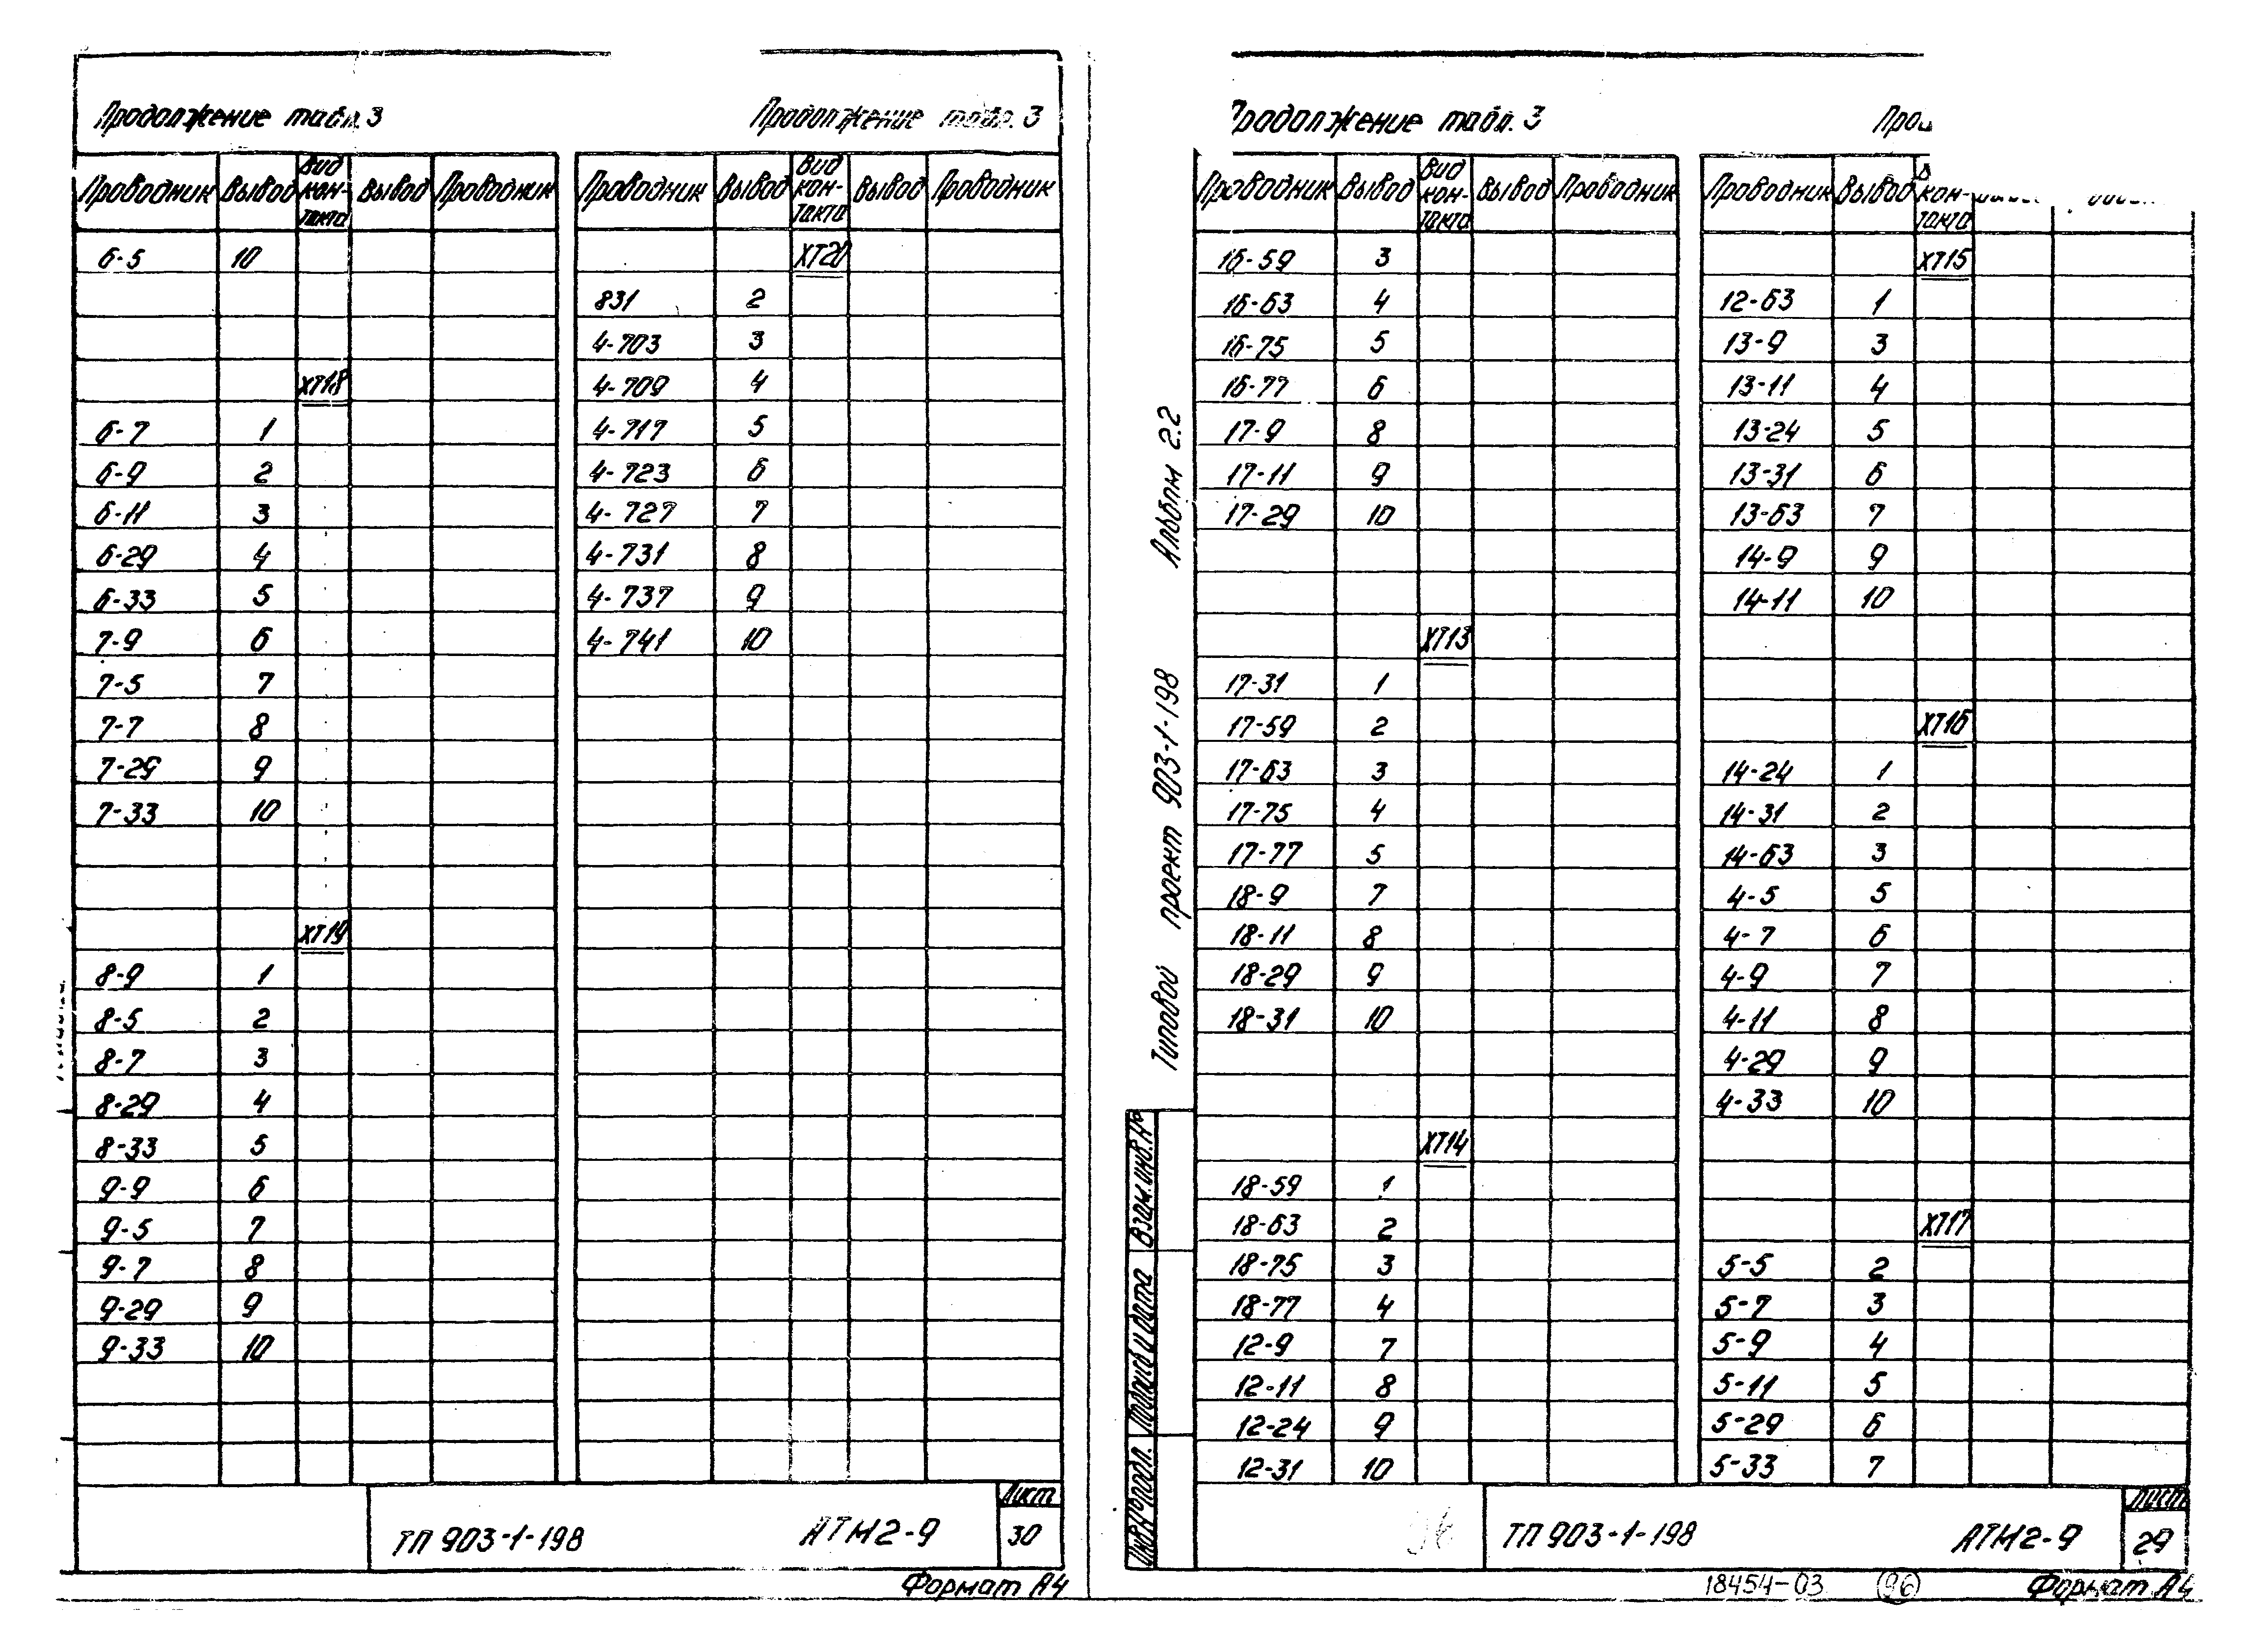 Продолжение табл. 3
Проводник Вывод Вид кон- такта Вывод Проводник
6-5 10
ХТ18
6-7 1
6-9 2
6-11 3
6-29 4
6-33 5
7-9 6
7-5 7
7-7 8
7-29 9
7-33 10
ХТ19
8-9 1
8-5 2
8-7 3
8-29 4
8-33 5
9-9 6
9-5 7
9-7 8
9-29 9
9-33 10
Продолжение табл. 3
Проводник Вывод Вид кон- такта Вывод Проводник
ХТ20
831 2
4-703 3
4-709 4
4-717 5
4-723 6
4-727 7
4-731 8
4-737 9
4-741 10
ТП 903-1-198 АТМ2-9
Лист
30
Формат А4
Продолжение табл. 3
Проводник Вывод Вид кон- такта Вывод Проводник
16-59 3
16-63 4
16-75 5
16-77 6
17-9 8
17-11 9
17-29 10
ХТ13
17-31 1
17-59 2
17-63 3
17-75 4
17-77 5
18-9 7
18-11 8
18-29 9
18-31 10
ХТ14
18-59 1
18-63 2
18-75 3
18-77 4
12-9 7
12-11 8
12-24 9
12-31 10
Проводник Вывод кон- такта
ХТ15
12-63 1
13-9 3
13-11 4
13-24 5
13-31 6
13-63 7
14-9 9
14-11 10
ХТ16
14-24 1
14-31 2
14-63 3
4-5 5
4-7 6
4-9 7
4-11 8
4-29 9
4-33 10
ХТ17
5-5 2
5-7 3
5-9 4
5-11 5
5-29 6
5-33 7
Типовой проект 903-1-198 Альбом 2.2
Взам. инв. №
Подпись и дата
Инв. № подл.
ТП 903-1-198 АТМ2-9
Лист
29
18454-03 96 Формат А4